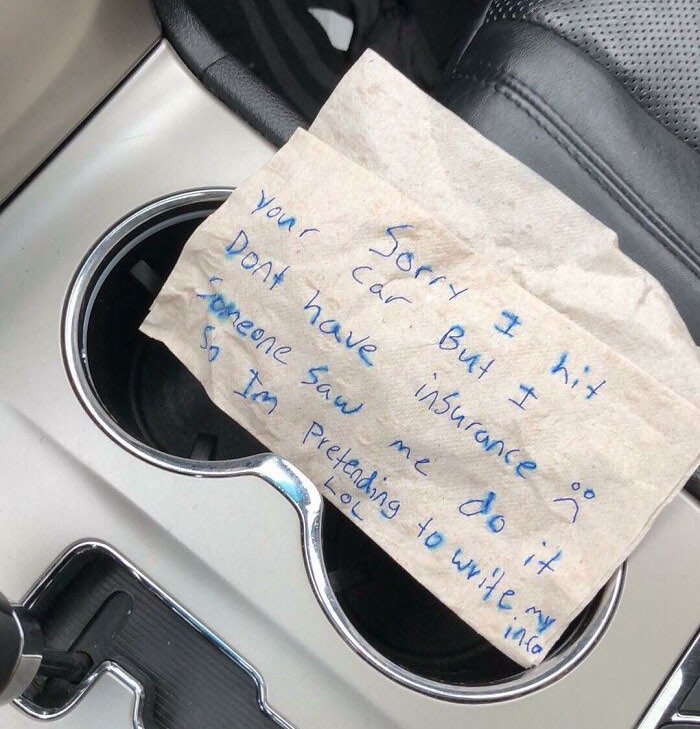 Sorry I hit
your car But I
Dont have insurance ☹
Someone saw me do it
So Im Pretending to write my
info
LOL